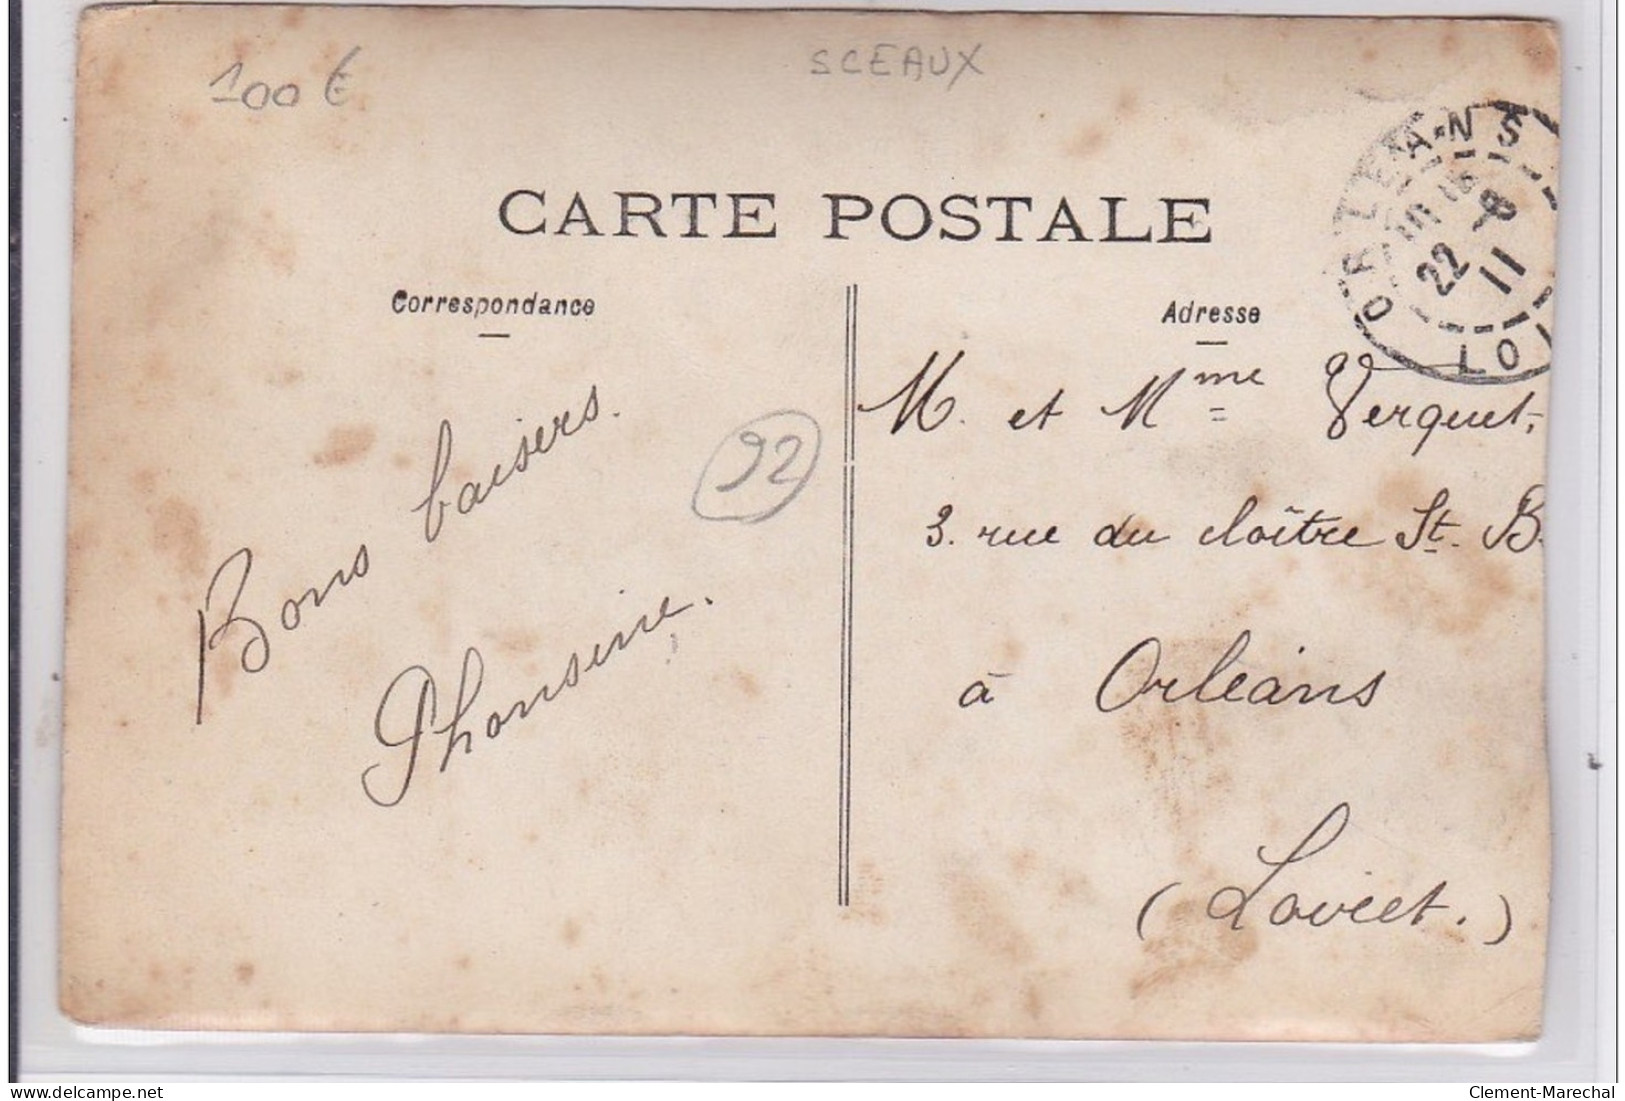 100 €
SCEAUX
ORLEANS
22 - 8
11
LOI
CARTE POSTALE
Correspondance
Adresse
M. et Mme Verquet,
3. rue du cloître St. B.
à Orléans
(Loiret.)
Bons baisers.
Phonsine.
92
delcampe.net
Clement-Marechal